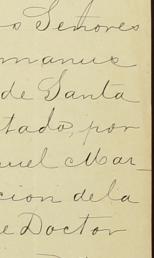 s Señores
manus
de Santa
tado, por
uel Mar-
cion dela
e Doctor